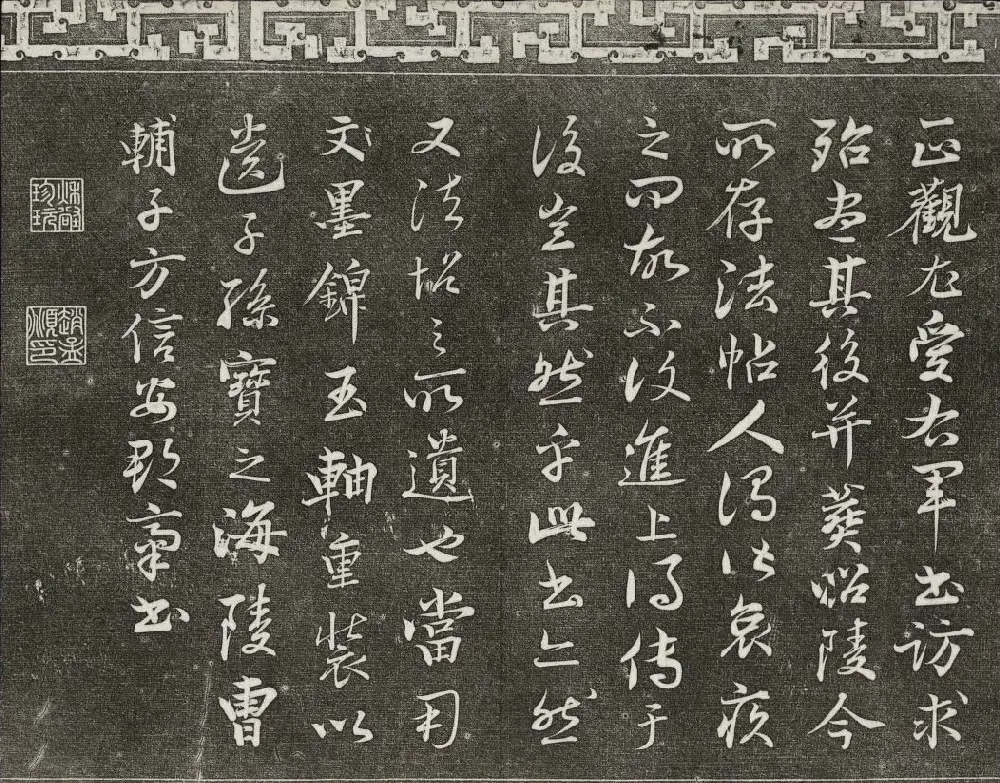 正觀尤愛右軍書訪求
殆盡其後并葬昭陵今
所存法帖人得以哀疾
之間故不進上得傳于
後豈其然乎此書亦然
又法塔之所遺也當用
文墨錦玉軸重裝以
遺子孫寶之海陵曹
輔子方信安郡齋書